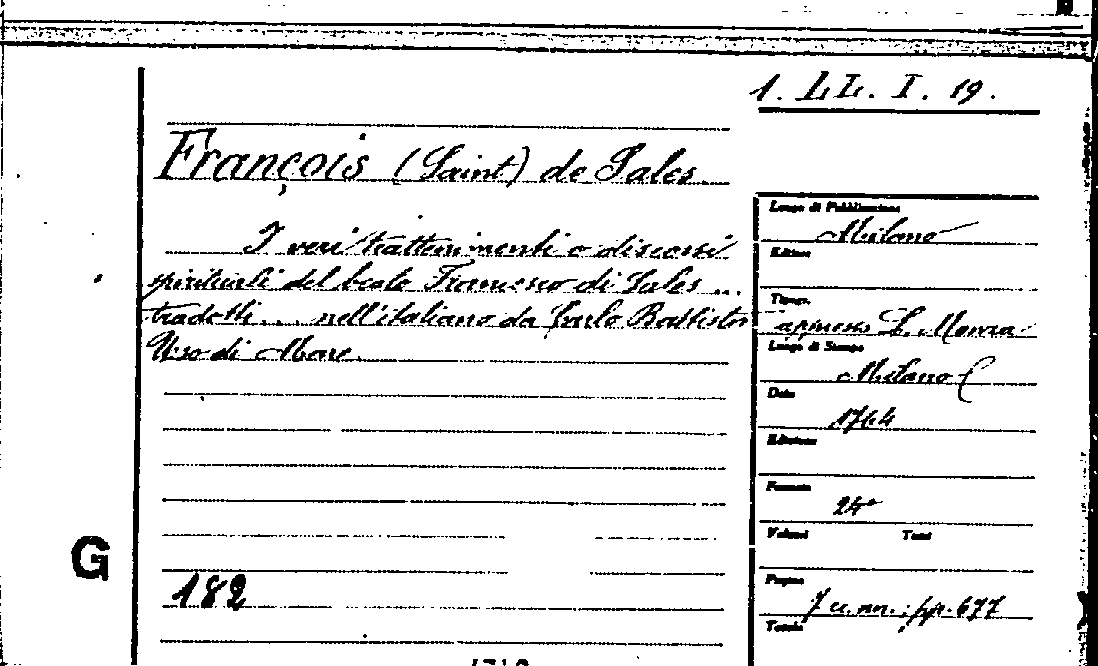 1. LL. I. 19.
François (Saint) de Sales
I veri trattenimenti o discorsi
spirituali del beato Francesco di Sales ...
tradotti ... nell'italiano da Carlo Battista
Uso di Mare
Luogo di Pubblicazione
Milano
Editore
Tipogr.
appresso L. Monza
Luogo di Stampa
Milano
Data
Edizione
Formato
24°
Volumi Tomi
Pagine
7 cc. nn.; pp. 677
Tavole
G
182